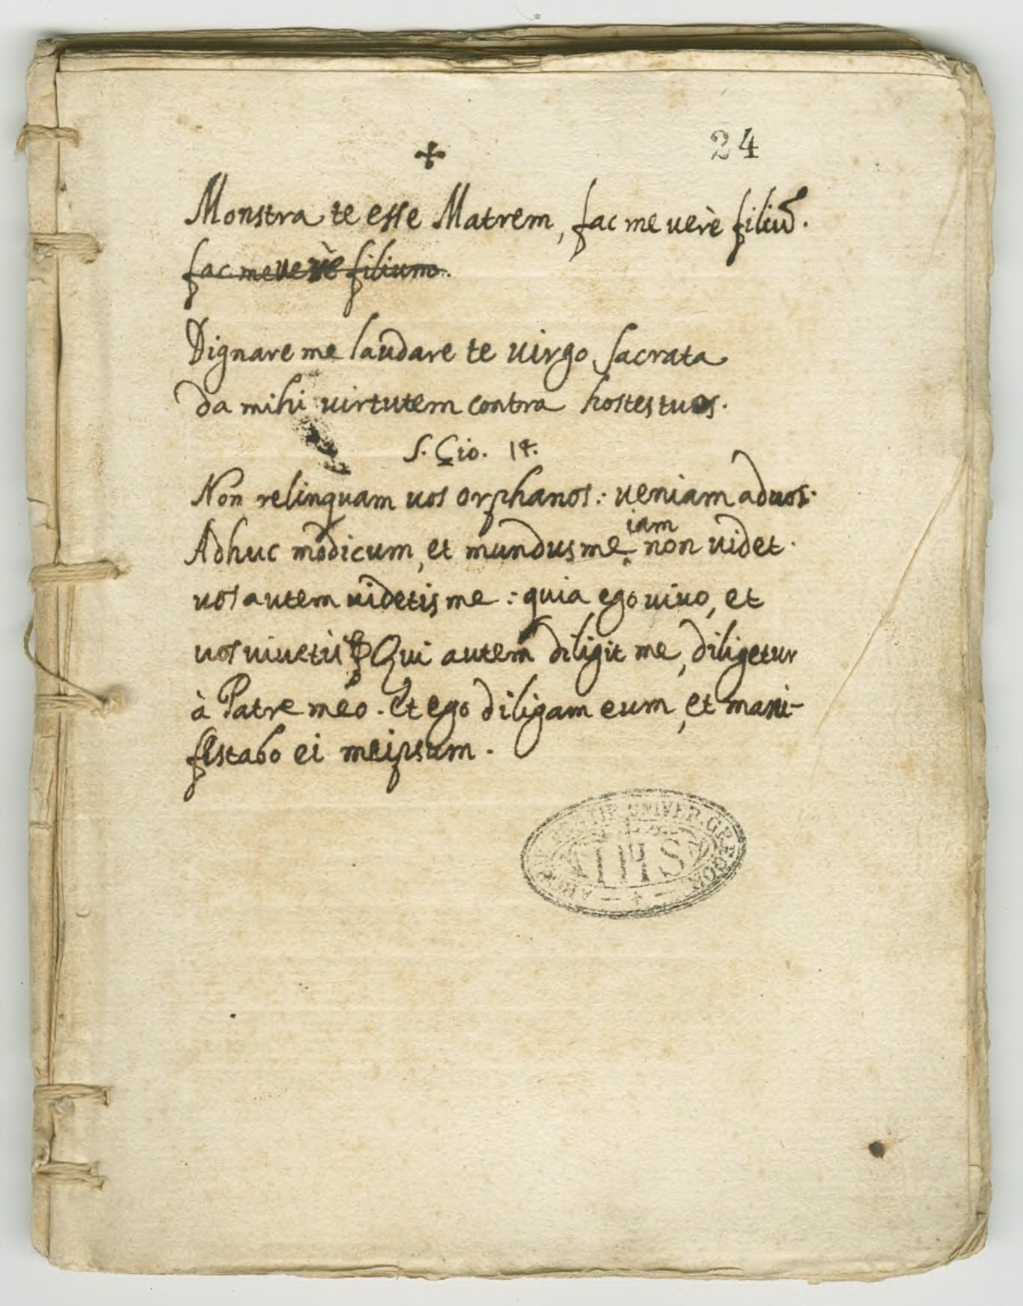 24
✢
Monstra te esse Matrem, fac me verè filiū.
fac me verè filium.
Dignare me laudare te virgo sacrata
da mihi uirtutem contra hostes tuos.
S. Gio. 14.
Non relinquam uos orphanos: ueniam ad uos.
iam
Adhuc modicum, et mundus me non uidet.
uos autem uidetis me: quia ego uiuo, et
uos uiuetis Qui autem diligit me, diligetur
à Patre meo. et ego diligam eum, et mani-
festabo ei meipsum.
UNIVER. GREGOR
IHS